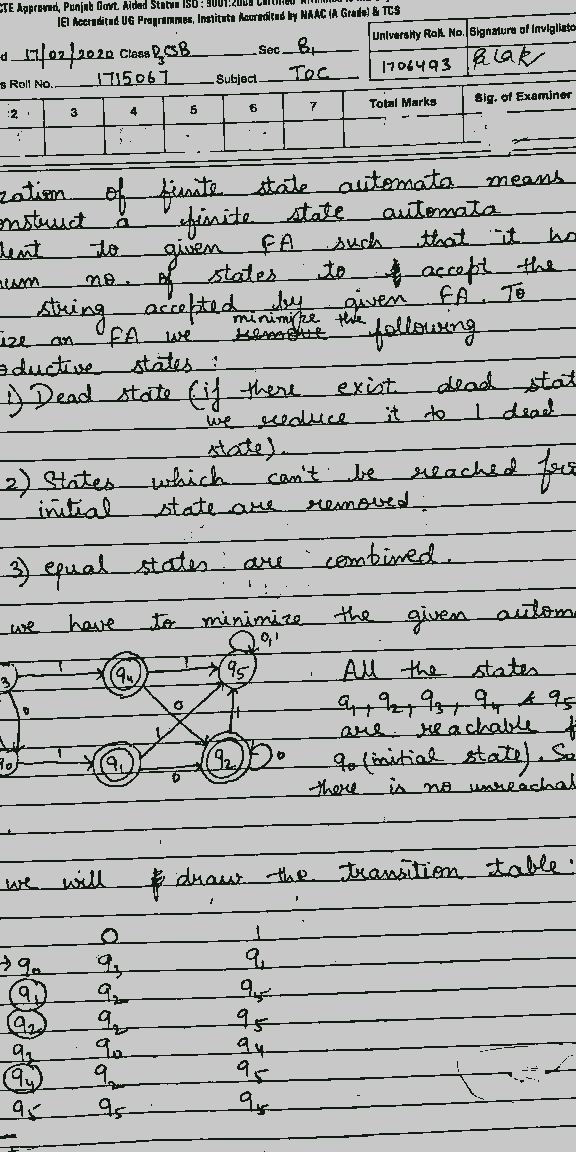 CTE Approved, Punjab Govt. Aided Status ISO : 9001:2008 Certified
IEI Accredited UG Programmes, Institute Accredited by NAAC (A Grade) & TCS
d 17/02/2020 Class D3CSB Sec B1 University Roll. No. Signature of Invigilato
s Roll No. 1715067 Subject TOC 1706493
2 3 4 5 6 7 Total Marks Sig. of Examiner
zation of finite state automata means
onstruct a finite state automata
lent to given FA such that it ha
mum no. of states to accept the
string accepted by given FA. To
ize an FA we remove minimize the following
oductive states :
1) Dead state (if there exist dead stat
we reduce it to 1 dead
state).
2) States which can't be reached fro
initial state are removed.
3) equal states are combined.
we have to minimize the given automa
0,1
3 1 q4 1 q5 All the states
0 0 1 1 q1, q2, q3, q4 & q5
are reachable f
q0 1 q1 0 q2 0 q0 (initial state). So
there is no unreachal
we will draw the transition table :
0 1
→ q0 q3 q1
q1 q2 q5
q2 q2 q5
q3 q0 q4
q4 q2 q5
q5 q5 q5